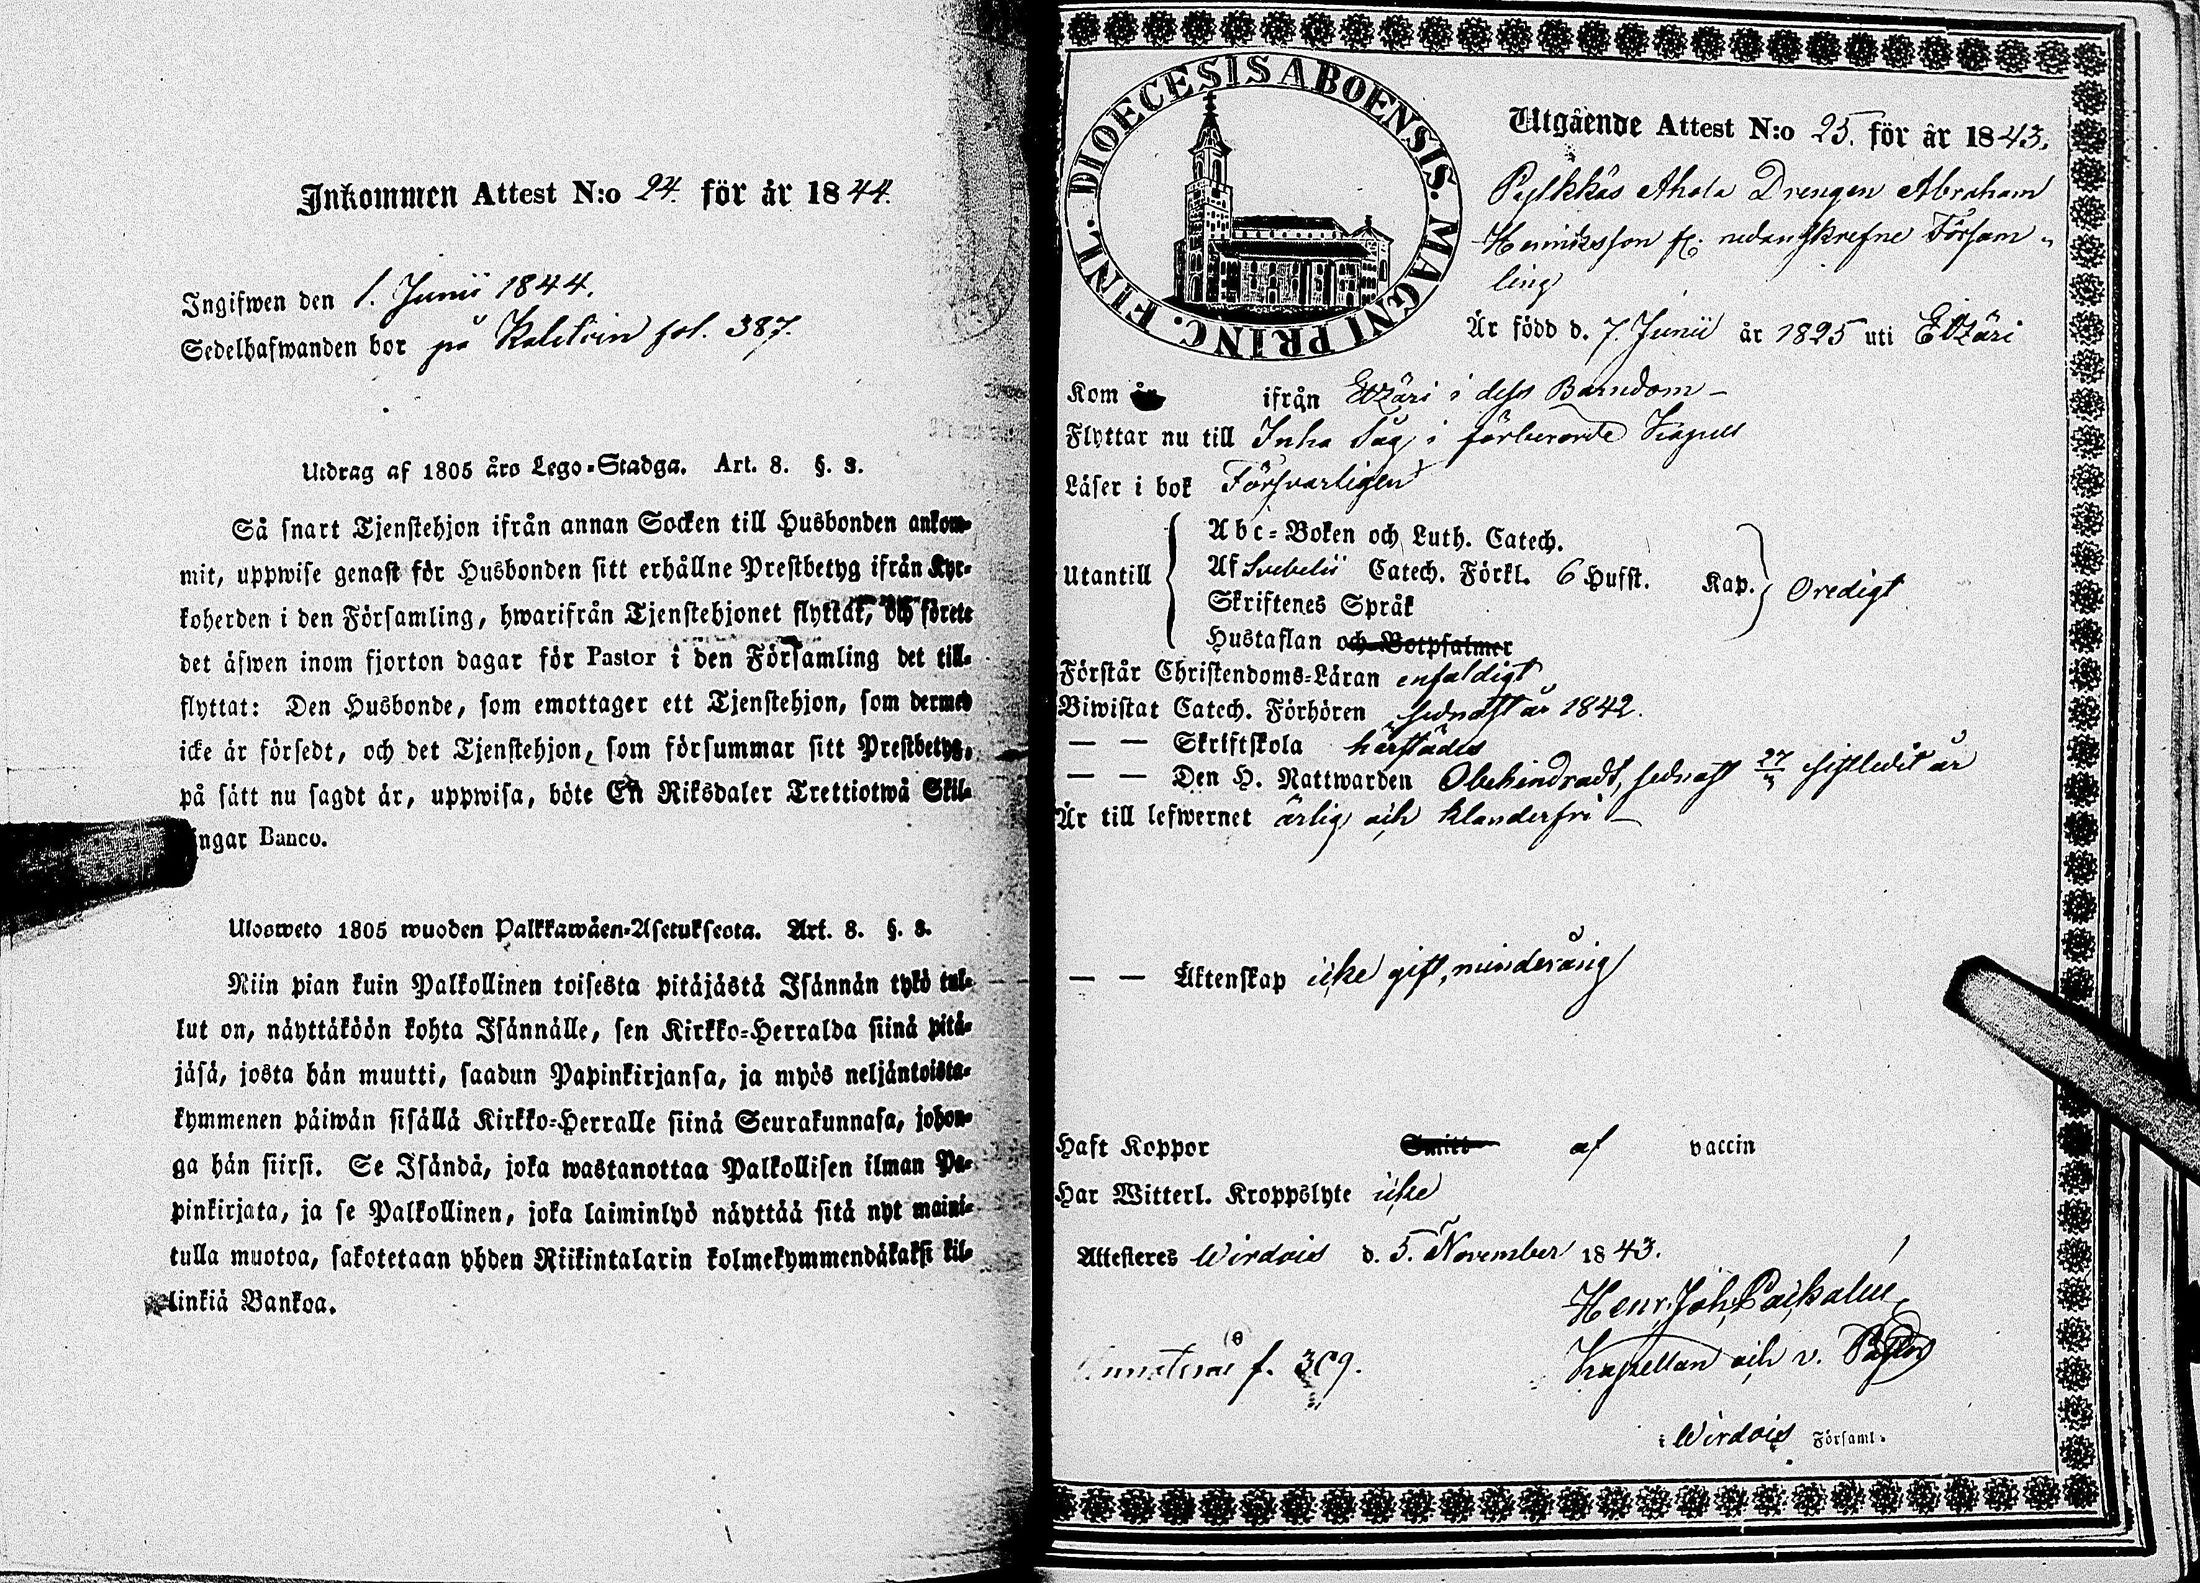 Inkommen Attest N:o 24. för år 1844.
Ingifwen den 1. Junii 1844.
Sedelhafwanden bor på fol. 387.
Utdrag af 1805 års Lego-Stadga. Art. 8. §. 3.
Så snart Tjenstehjon ifrån annan Socken till Husbonden ankom-
mit, uppwise genast för Husbonden sitt erhållne Prestbetyg ifrån Kyr-
koherden i den Församling, hwarifrån Tjenstehjonet flyttat, och förete
det äfwen inom fjorton dagar för Pastor i den Församling det till-
flyttat: Den Husbonde, som emottager ett Tjenstehjon, som dermed
icke är försedt, och det Tjenstehjon, som försummar sitt Prestbetyg,
på sätt nu sagdt är, uppwisa, böte En Riksdaler Trettiotwå Skil-
ingar Banco.
Ulosweto 1805 wuoden Palkkawäen-Asetuksesta. Art. 8. §. 3.
Niin pian kuin Palkollinen toisesta pitäjästä Isännän tykö tul-
lut on, näyttäköön kohta Isännälle, sen Kirkko-Herralda siinä pitä-
jäsä, josta hän muutti, saadun Papinkirjansa, ja myös neljäntoista-
kymmenen päiwän sisällä Kirkko-Herralle siinä Seurakunnasa, johon-
ga hän siirsi. Se Isändä, joka wastanottaa Palkollisen ilman Pa-
pinkirjata, ja se Palkollinen, joka laiminlyö näyttää sitä nyt maini-
tulla muotoa, sakotetaan yhden Riikintalarin kolmekymmendäkaksi kil-
linkiä Bankoa.
FINL. DIOECESIS ABOENSIS. MAGNI PRINC.
Utgående Attest N:o 25. för år 1843.
Pylkkäs Ahola Drengen Abraham
Henriksson fr. nedanskrefne Försam-
ling
Är född d. 7. Junii år 1825 uti Etzäri
Kom år ifrån Etzäri i dess Barndom
Flyttar nu till Inha Såg i förberörde Kapell
Läser i bok Försvarligen
Utantill
Abc-Boken och Luth. Catech.
Af Svebelii Catech. Förkl. 6 Hufst. Kap. Oredigt
Skriftenes Språk
Hustaflan och Botpsalmer
Förstår Christendoms-Läran enfaldigt
Biwistat Catech. Förhören sednast år 1842.
— — Skriftskola härstädes
— — Den H. Nattwarden Obehindradt, sednast 27/3 sistledit år
Är till lefwernet ärlig och klanderfri
— — Äktenskap icke gift, minderårig
Haft Koppor Smitt af vaccin
Har Witterl. Kroppslyte icke
Attesteres Wirdois d. 5. November 1843.
Henr. Joh.
Kapellan och v. Pastor
f. 309.
i Wirdois Församl.